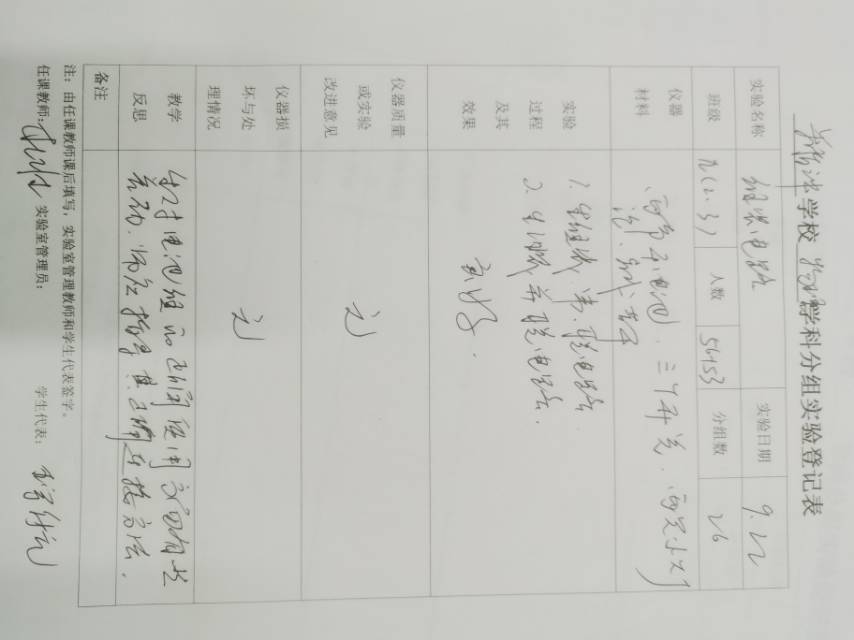 学校物理学科分组实验登记表
实验名称 组装电路 实验日期 9.22
班级 九(2.3) 人数 56+53 分组数 26
仪器
材料
两节干电池、三个开关、两只小灯
泡、导线若干
实验
过程
及其
效果
1. 串联电路
2. 并联电路.
良好.
仪器质量
或实验
改进意见
无
仪器损
坏与处
理情况
无
教学
反思
电池组的正确使用
师应指导其正确连接方法.
备注
注:由任课教师课后填写,实验室管理教师和学生代表签字。
任课教师: 实验室管理员: 学生代表: